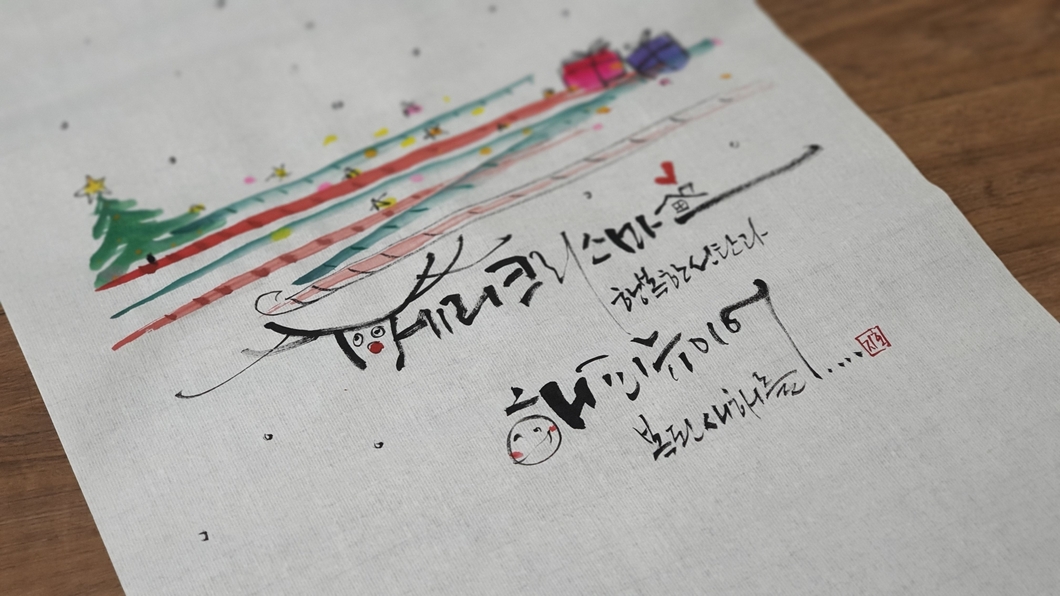 메리크리스마스
행복한성탄과
해피뉴이어
복된새해를 ....